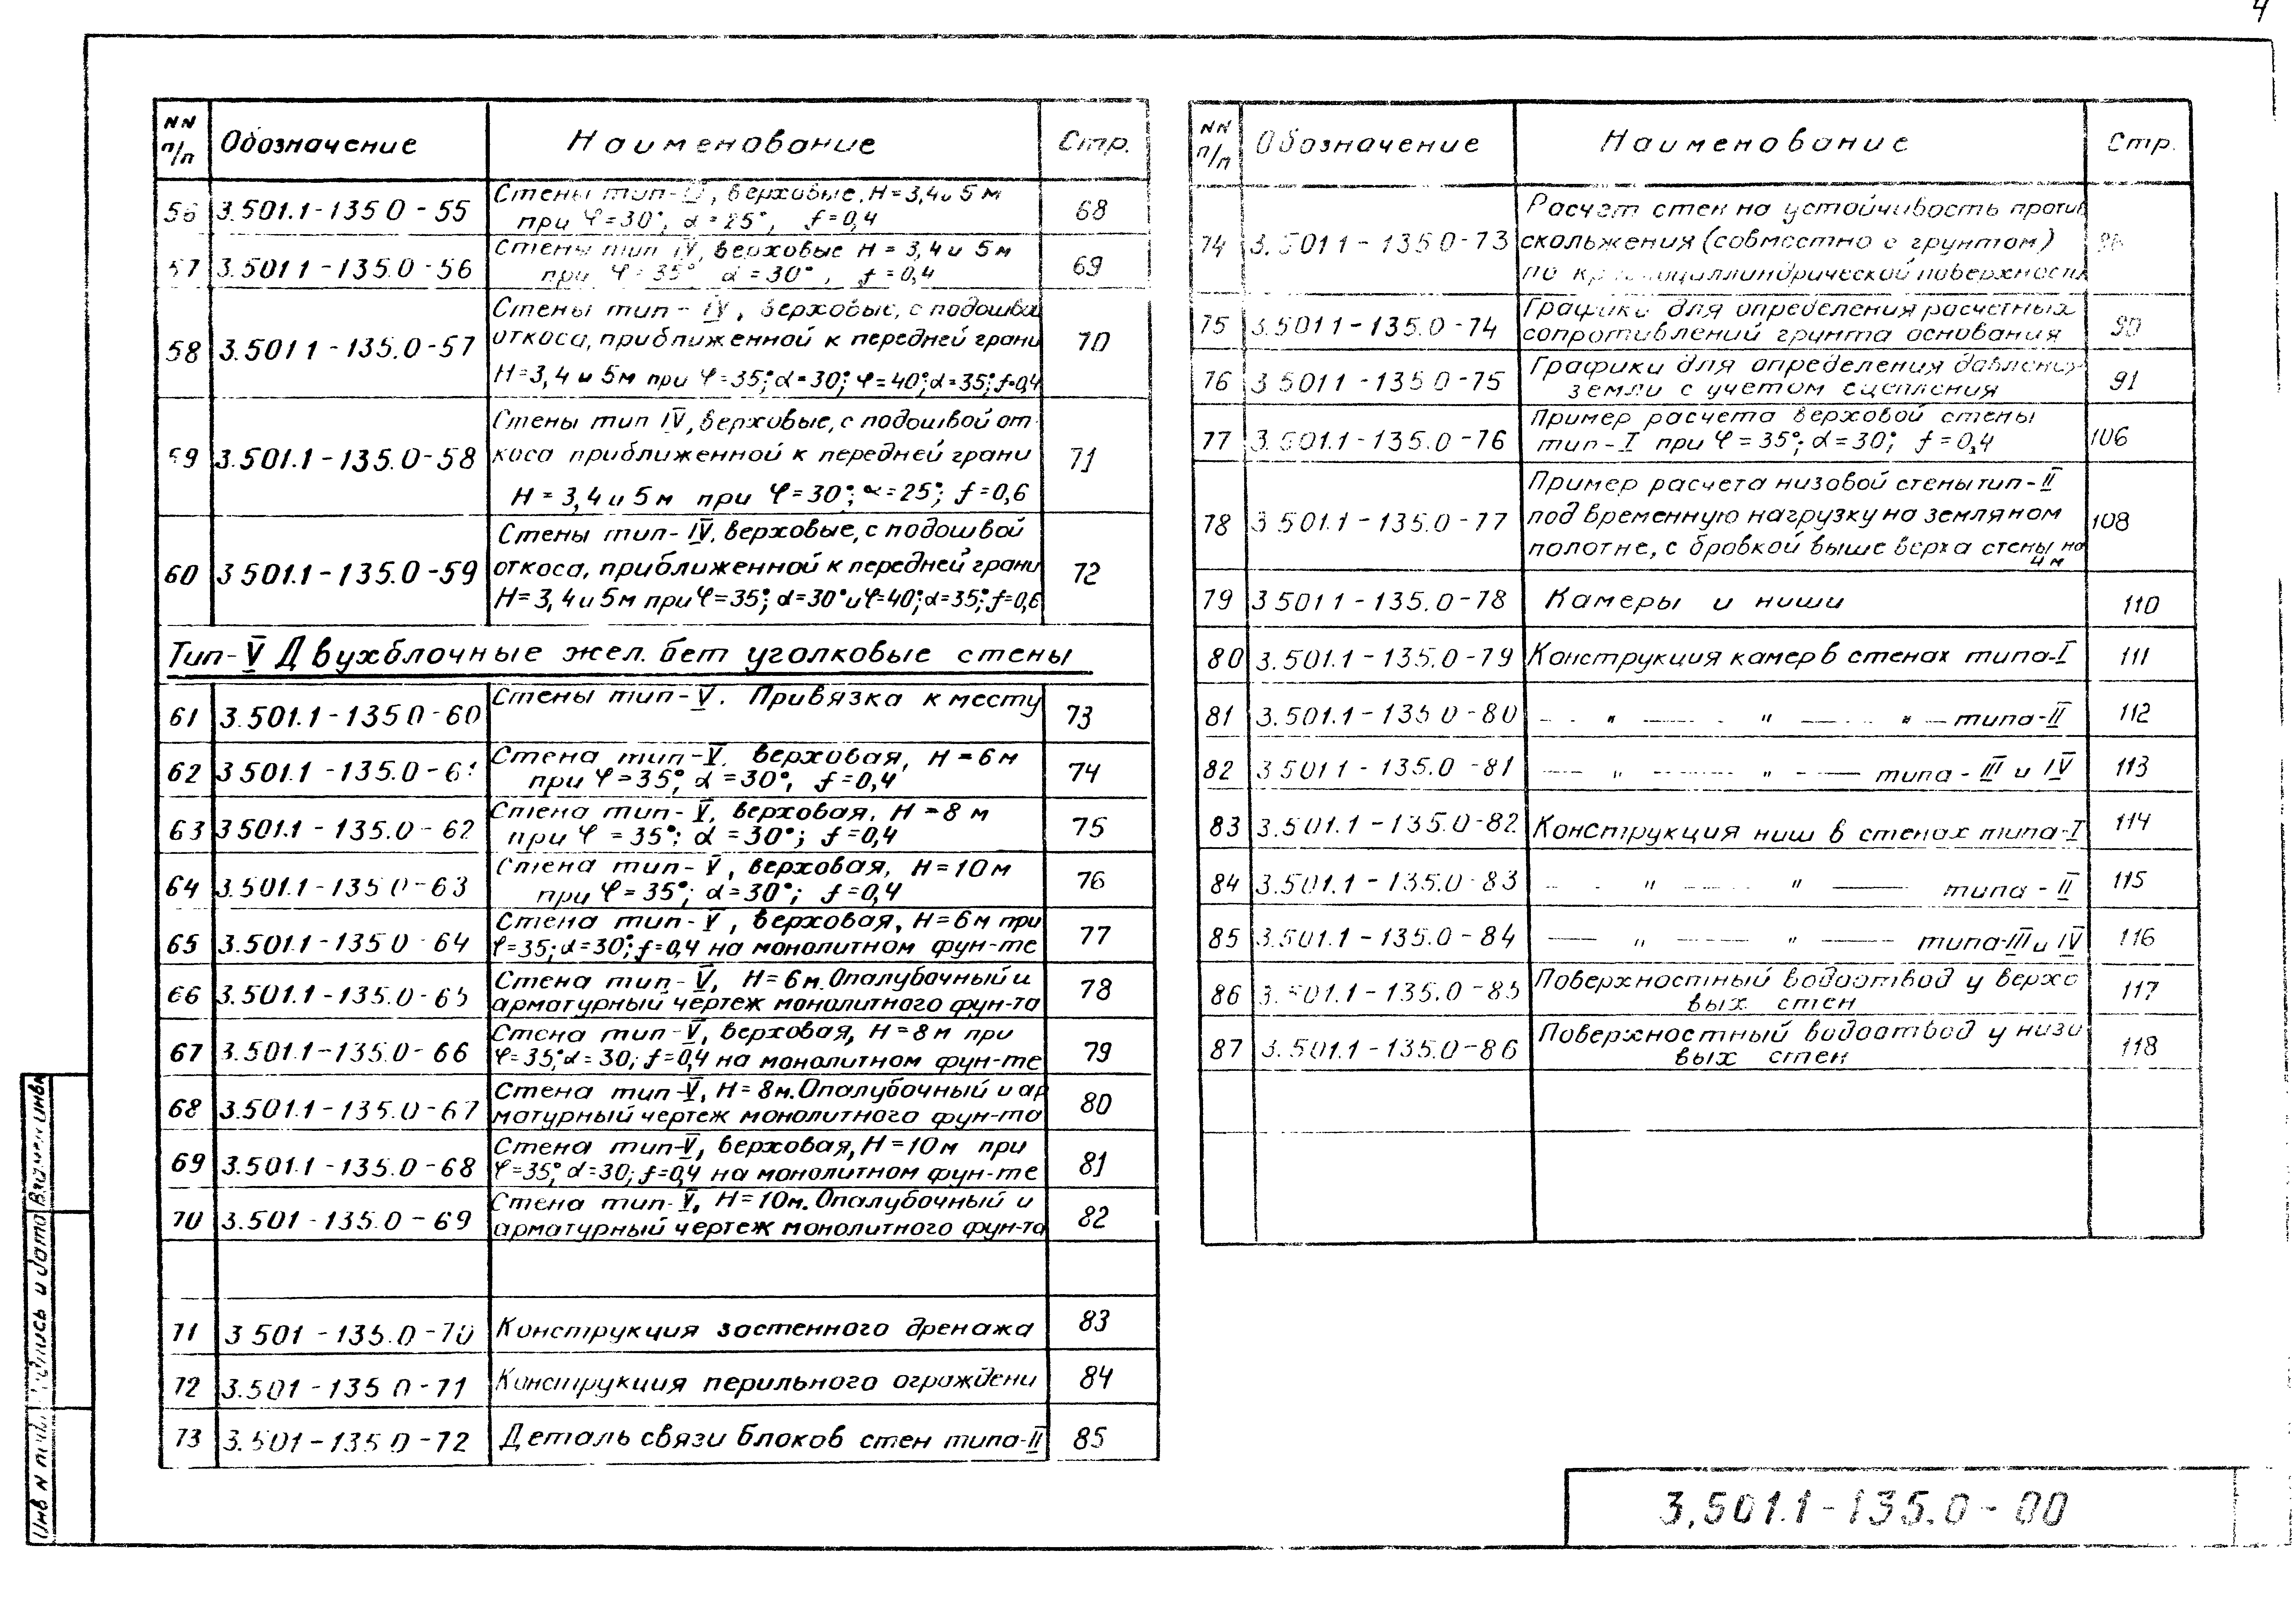 4
NN п/п Обозначение Наименование Стр.
56 3.501.1-135 0-55 Стены тип-IV, верховые, H=3,4 и 5 м
при φ=30°; α=25°, f=0,4 68
57 3.501 1-135.0-56 Стены тип IV, верховые H=3,4 и 5 м
при φ=35° α=30°, f=0,4 69
58 3.501 1-135.0-57 Стены тип-IV, верховые, с подошвой
откоса, приближенной к передней грани
H=3,4 и 5м при φ=35°; α=30°; φ=40°; α=35°; f=0,4 70
59 3.501.1-135.0-58 Стены тип IV, верховые, с подошвой от-
коса приближенной к передней грани
H=3,4 и 5м при φ=30°; α=25°; f=0,6 71
60 3 501.1-135.0-59 Стены тип-IV, верховые, с подошвой
откоса, приближенной к передней грани
H=3,4 и 5м при φ=35°; α=30° и φ=40°; α=35°; f=0,6 72
Тип-V Двухблочные жел. бет уголковые стены
61 3.501.1-135 0-60 Стены тип-V. Привязка к месту 73
62 3 501.1-135.0-61 Стена тип-V. верховая, H=6м
при φ=35°, α=30°, f=0,4 74
63 3 501.1-135.0-62 Стена тип-V, верховая, H=8 м
при φ=35°; α=30°; f=0,4 75
64 3.501.1-135 0-63 Стена тип-V, верховая, H=10м
при φ=35°; α=30°; f=0,4 76
65 3.501.1-135 0-64 Стена тип-V, верховая, H=6м при
φ=35; α=30°; f=0,4 на монолитном фун-те 77
66 3.501.1-135.0-65 Стена тип-V, H=6м. Опалубочный и
арматурный чертеж монолитного фун-та 78
67 3.501.1-135.0-66 Стена тип-V, верховая, H=8м при
φ=35°, α=30; f=0,4 на монолитном фун-те 79
68 3.501.1-135.0-67 Стена тип-V, H=8м. Опалубочный и ар
матурный чертеж монолитного фун-та 80
69 3.501.1-135.0-68 Стена тип-V, верховая, H=10м при
φ=35°, α=30; f=0,4 на монолитном фун-те 81
70 3.501-135.0-69 Стена тип-V, H=10м. Опалубочный и
арматурный чертеж монолитного фун-та 82
71 3 501-135.0-70 Конструкция застенного дренажа 83
72 3.501-135 0-71 Конструкция перильного ограждени 84
73 3.501-135 0-72 Деталь связи блоков стен типа-II 85
NN п/п Обозначение Наименование Стр.
74 3.501 1-135 0-73 Расчет стен на устойчивость против
скольжения (совместно с грунтом)
по поверхности
75 3.501 1-135.0-74 Графики для определения расчетных
сопротивлений грунта основания 90
76 3 501 1-135 0-75 Графики для определения давления
земли с учетом сцепления 91
77 3.501.1-135.0-76 Пример расчета верховой стены
тип-I при φ=35°; α=30°; f=0,4 106
78 3 501.1-135.0-77 Пример расчета низовой стены тип-II
под временную нагрузку на земляном
полотне, с бровкой выше верха стены на
4 м 108
79 3 501 1-135.0-78 Камеры и ниши 110
80 3.501.1-135.0-79 Конструкция камер в стенах типа-I 111
81 3.501.1-135 0-80 — " — " — " — типа-II 112
82 3 501 1-135.0-81 — " — " — типа-III и IV 113
83 3.501.1-135.0-82 Конструкция ниш в стенах типа-I 114
84 3.501.1-135.0-83 — " — " — типа-II 115
85 3.501.1-135.0-84 — " — " — типа-III и IV 116
86 3.501.1-135.0-85 Поверхностный водоотвод у верхо
вых стен 117
87 3.501.1-135.0-86 Поверхностный водоотвод у низо
вых стен 118
3.501.1-135.0-00
Инв N подл. Подпись и дата Взамен инв